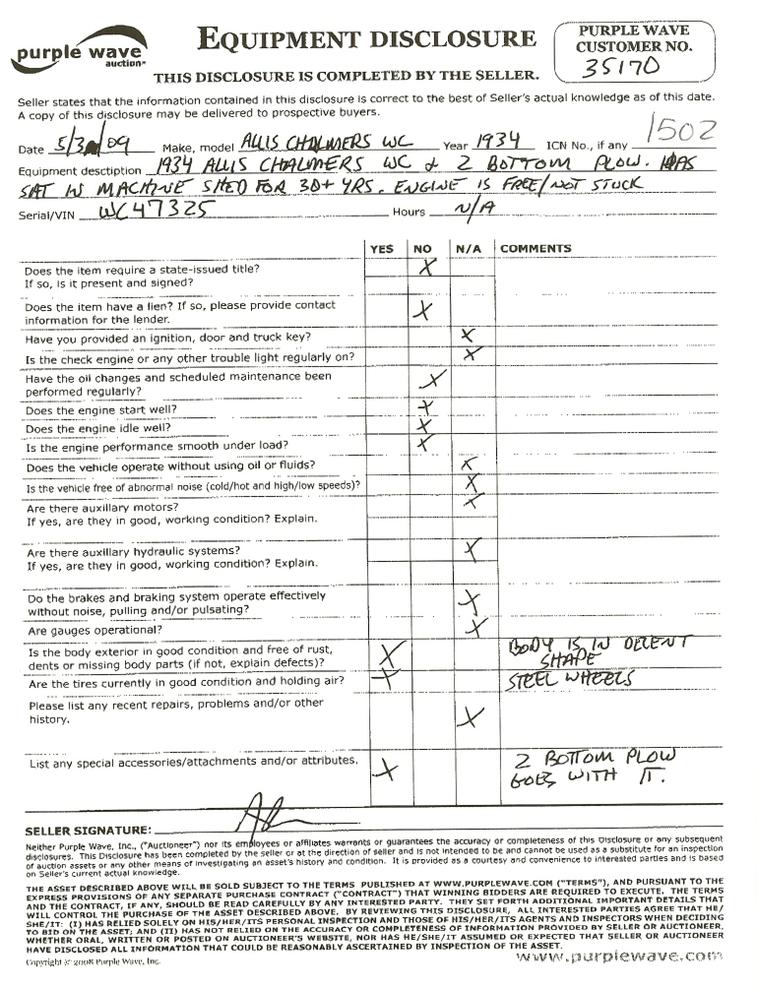 purple wave
auction
EQUIPMENT DISCLOSURE
THIS DISCLOSURE IS COMPLETED BY THE SELLER.
PURPLE WAVE
CUSTOMER NO.
35170
Seller states that the information contained in this disclosure is correct to the best of Seller's actual knowledge as of this date.
A copy of this disclosure may be delivered to prospective buyers.
1502
Date 5/3 09 Make, model ALLIS CHALMERS WC Year 1934 ICN No., if any
Equipment desctiption 1934 ALLIS CHALMERS WC & 2 BOTTOM PLOW. HAS
SAT IN MACHINE SHED FOR 30+ YRS. ENGINE IS FREE/NOT STUCK
Serial/VIN WC47325 Hours N/A
YES NO N/A COMMENTS
Does the item require a state-issued title? X
If so, is it present and signed?
Does the item have a lien? If so, please provide contact X
information for the lender.
Have you provided an ignition, door and truck key? X
Is the check engine or any other trouble light regularly on? X
Have the oil changes and scheduled maintenance been X
performed regularly?
Does the engine start well? X
Does the engine idle well? X
Is the engine performance smooth under load? X
Does the vehicle operate without using oil or fluids? X
Is the vehicle free of abnormal noise (cold/hot and high/low speeds)? X
Are there auxillary motors? X
If yes, are they in good, working condition? Explain.
Are there auxillary hydraulic systems? X
If yes, are they in good, working condition? Explain.
Do the brakes and braking system operate effectively X
without noise, pulling and/or pulsating?
Are gauges operational? X
Is the body exterior in good condition and free of rust, X BODY IS IN DECENT
dents or missing body parts (if not, explain defects)? SHAPE
Are the tires currently in good condition and holding air? X STEEL WHEELS
Please list any recent repairs, problems and/or other X
history.
List any special accessories/attachments and/or attributes. X 2 BOTTOM PLOW
GOES WITH IT.
SELLER SIGNATURE:
Neither Purple Wave, Inc., ("Auctioneer") nor its employees or affiliates warrants or guarantees the accuracy or completeness of this Disclosure or any subsequent
disclosures. This Disclosure has been completed by the seller or at the direction of seller and is not intended to be and cannot be used as a substitute for an inspection
of auction assets or any other means of investigating an asset's history and condition. It is provided as a courtesy and convenience to interested parties and is based
on Seller's current actual knowledge.
THE ASSET DESCRIBED ABOVE WILL BE SOLD SUBJECT TO THE TERMS PUBLISHED AT WWW.PURPLEWAVE.COM ("TERMS"), AND PURSUANT TO THE
EXPRESS PROVISIONS OF ANY SEPARATE PURCHASE CONTRACT ("CONTRACT") THAT WINNING BIDDERS ARE REQUIRED TO EXECUTE. THE TERMS
AND THE CONTRACT, IF ANY, SHOULD BE READ CAREFULLY BY ANY INTERESTED PARTY. THEY SET FORTH ADDITIONAL IMPORTANT DETAILS THAT
WILL CONTROL THE PURCHASE OF THE ASSET DESCRIBED ABOVE. BY REVIEWING THIS DISCLOSURE, ALL INTERESTED PARTIES AGREE THAT HE/
SHE/IT: (I) HAS RELIED SOLELY ON HIS/HER/ITS PERSONAL INSPECTION AND THOSE OF HIS/HER/ITS AGENTS AND INSPECTORS WHEN DECIDING
TO BID ON THE ASSET; AND (II) HAS NOT RELIED ON THE ACCURACY OR COMPLETENESS OF INFORMATION PROVIDED BY SELLER OR AUCTIONEER,
WHETHER ORAL, WRITTEN OR POSTED ON AUCTIONEER'S WEBSITE, NOR HAS HE/SHE/IT ASSUMED OR EXPECTED THAT SELLER OR AUCTIONEER
HAVE DISCLOSED ALL INFORMATION THAT COULD BE REASONABLY ASCERTAINED BY INSPECTION OF THE ASSET.
Copyright © 2008 Purple Wave, Inc. www.purplewave.com